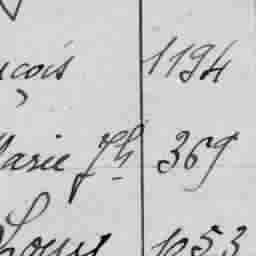 nçois 1194
Marie Jh 369
Louis 1053